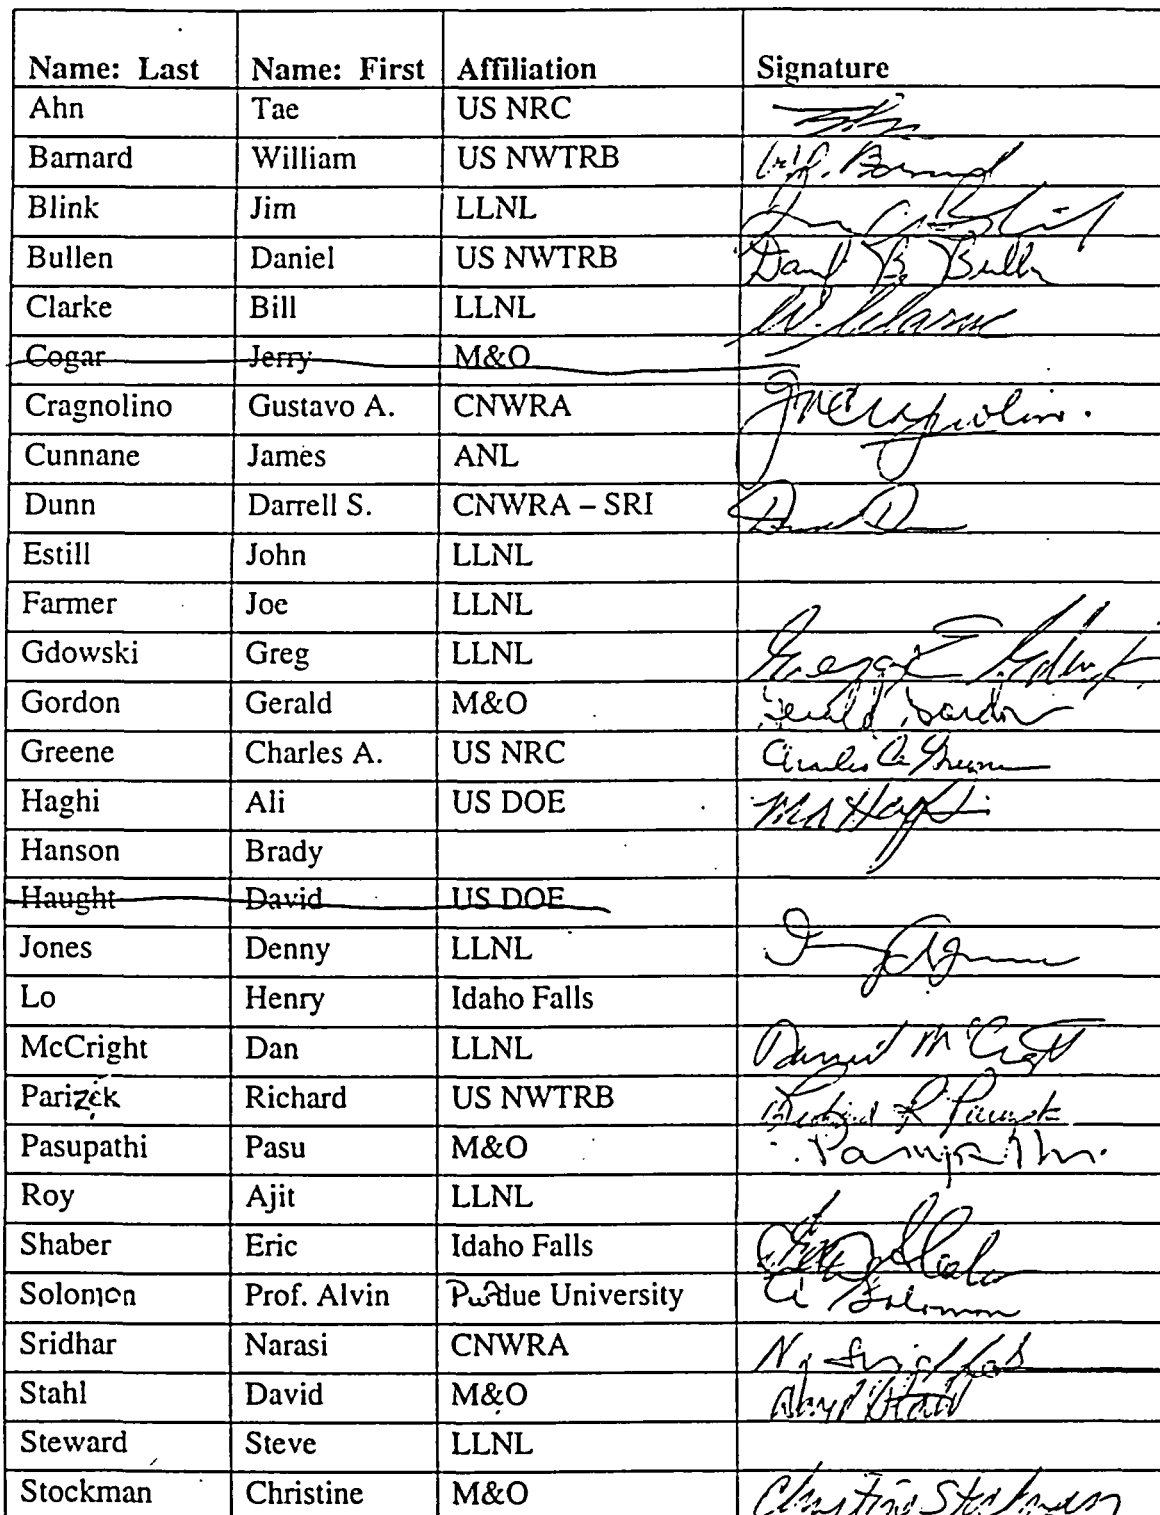 Name: Last Name: First Affiliation Signature
Ahn Tae US NRC
Barnard William US NWTRB W.D. Barnard
Blink Jim LLNL
Bullen Daniel US NWTRB Daniel B. Bullen
Clarke Bill LLNL
Cogar Jerry M&O
Cragnolino Gustavo A. CNWRA
Cunnane James ANL
Dunn Darrell S. CNWRA – SRI
Estill John LLNL
Farmer Joe LLNL
Gdowski Greg LLNL
Gordon Gerald M&O Gerald Gordon
Greene Charles A. US NRC Charles A Greene
Haghi Ali US DOE
Hanson Brady
Haught David US DOE
Jones Denny LLNL
Lo Henry Idaho Falls
McCright Dan LLNL Daniel McCright
Parizek Richard US NWTRB Richard R Parizek
Pasupathi Pasu M&O Pasupathi
Roy Ajit LLNL
Shaber Eric Idaho Falls
Solomon Prof. Alvin Purdue University A Solomon
Sridhar Narasi CNWRA N. Sridhar
Stahl David M&O David Stahl
Steward Steve LLNL
Stockman Christine M&O Christine Stockman